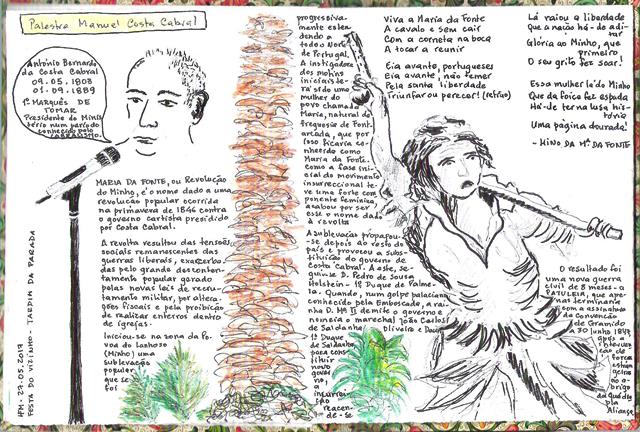 Palestra Manuel Costa Cabral
António Bernardo
da Costa Cabral
09.05.1803
01.09.1889
1º MARQUÊS DE
TOMAR
Presidente do Minis
tério num período
conhecido pelo
CABRALISMO.
MARIA DA FONTE, ou Revolução
do Minho, é o nome dado a uma
revolução popular ocorrida
na primavera de 1846 contra
o governo cartista presidido
por Costa Cabral.
A revolta resultou das tensões
sociais remanescentes das
guerras liberais, exacerba-
das pelo grande descon-
tentamento popular gerado
pelas novas leis de recru-
tamento militar, por altera-
ções fiscais e pela proibição
de realizar enterros dentro
de igrejas.
Iniciou-se na zona da Pó
voa do Lanhoso
(Minho) uma
sublevação
popular
que se
foi
progressiva-
mente esten-
dendo a
todo o Norte
de Portugal.
A instigadora
dos motins
iniciais te-
rá sido uma
mulher do
povo chamada
Maria, natural da
freguesia de Font
arcada, que por
isso ficaria co-
nhecida como
Maria da Fonte.
Como a fase ini-
cial do movimento
insurreccional te-
ve uma forte com
ponente feminina,
acabou por ser
esse o nome dado
à revolta
A sublevação propagou-
-se depois ao resto do
país e provocou a subs-
tituição do governo de
Costa Cabral. A este, se-
guiu-se D. Pedro de Sousa
Holstein - 1º Duque de Palme-
la. Quando, num golpe palaciano,
conhecido pela Emboscada, a rai-
nha D. Mª II demite o governo e
nomeia o marechal João Carlos
de Saldanha Oliveira e Daun
1º Duque
de Saldanha,
para cons-
tituir
novo
gover-
no,
a
insurrei-
ção
reacen-
de-se
Viva a Maria da Fonte
A cavalo e sem cair
Com a corneta na boca
A tocar a reunir
Eia avante, portugueses
Eia avante, não temer
Pela santa liberdade
Triunfar ou perecer! (refrão)
Lá raiou a liberdade
Que a nação há-de adi-
tar
Glória ao Minho, que
primeiro
O seu grito fez soar!
Essa mulher lá do Minho
Que da foice fez espada
Há-de ter na lusa his-
tória
Uma página dourada!
- HINO DA Mª DA FONTE
O resultado foi
uma nova guerra
civil de 8 meses - a
PATULEIA, que ape-
nas terminaria
com a assinatura
da Convenção
de Gramido
a 30 Junho 1847
após a
interven
ção de
forças
estran
geiras
ao
abrigo
da Quádru
pla
Aliança
HFM - 29.05.2017
FESTA DO VIZINHO - JARDIM DA PARADA